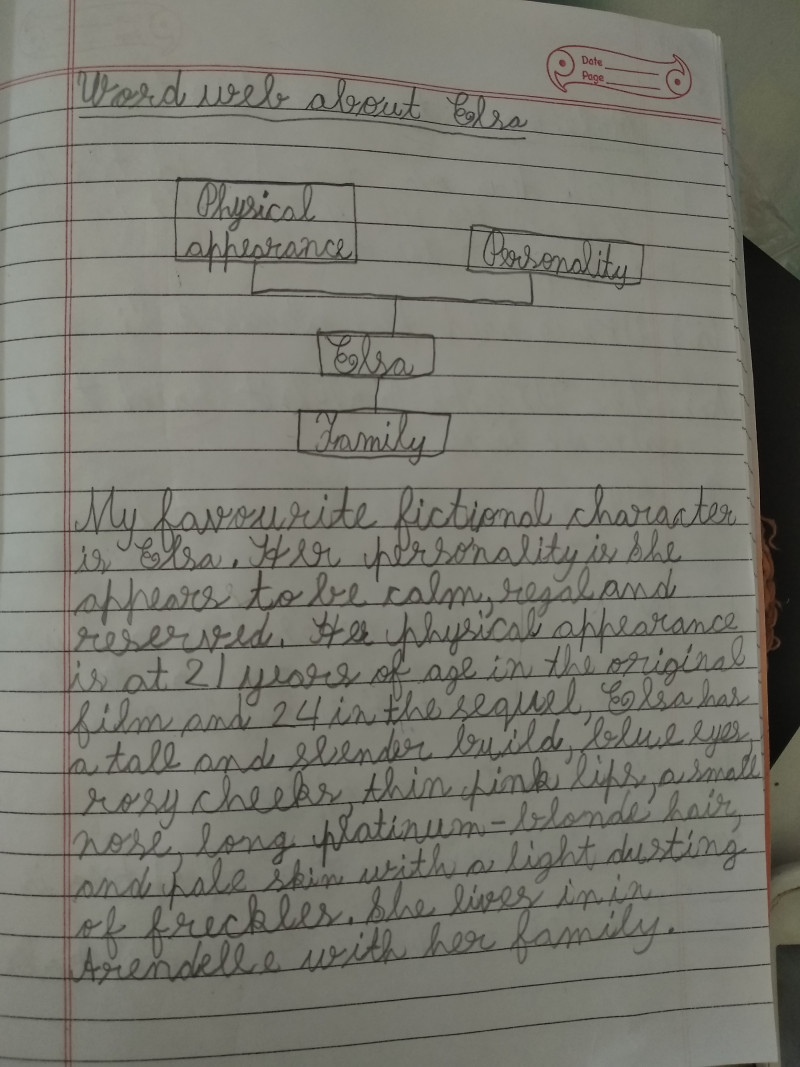 Date
Page
Word web about Elsa
Physical
appearance
Personality
Elsa
Family
My favourite fictional character
is Elsa. Her personality is she
appears to be calm, regal and
reserved. Her physical appearance
is at 21 years of age in the original
film and 24 in the sequel, Elsa has
a tall and slender build, blue eyes,
rosy cheeks, thin pink lips, a small
nose, long platinum-blonde hair,
and pale skin with a light dusting
of freckles. She lives in in
Arendelle with her family.